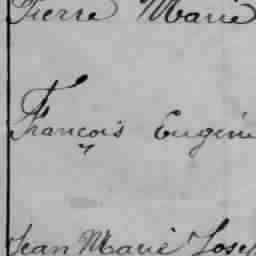 Pierre Marie
François Eugène
Jean Marie Josep